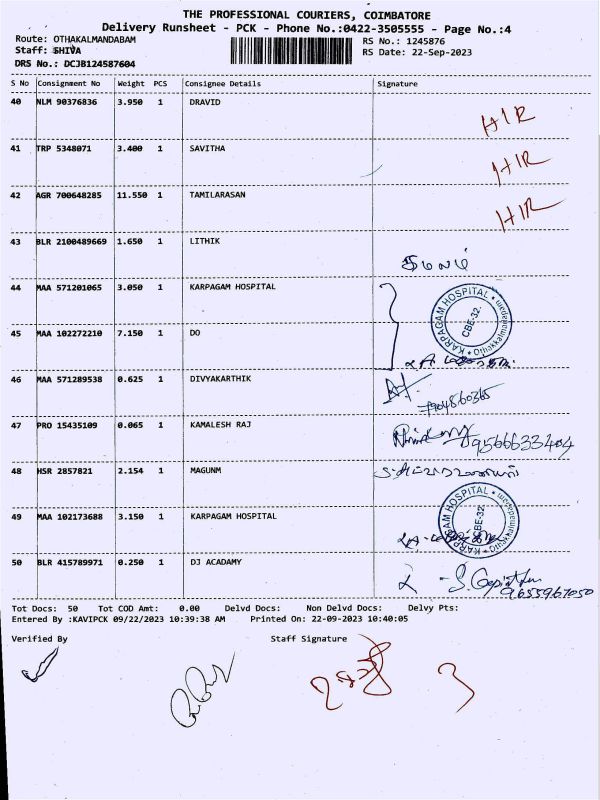 THE PROFESSIONAL COURIERS, COIMBATORE
Delivery Runsheet - PCK - Phone No.:0422-3505555 - Page No.:4
Route: OTHAKALMANDABAM RS No.: 1245876
Staff: SHIVA RS Date: 22-Sep-2023
DRS No.: DCJB124587604
S No Consignment No Weight PCS Consignee Details Signature
40 NLM 90376836 3.950 1 DRAVID HIR
41 TRP 5348071 3.400 1 SAVITHA HIR
42 AGR 700648285 11.550 1 TAMILARASAN HIR
43 BLR 2100489669 1.650 1 LITHIK
44 MAA 571201065 3.050 1 KARPAGAM HOSPITAL
KARPAGAM HOSPITAL
CBE-32.
45 MAA 102272210 7.150 1 DO
46 MAA 571289538 0.625 1 DIVYAKARTHIK
47 PRO 15435109 0.065 1 KAMALESH RAJ 9566633404
48 HSR 2857821 2.154 1 MAGUNM
49 MAA 102173688 3.150 1 KARPAGAM HOSPITAL
KARPAGAM HOSPITAL
CBE-32.
50 BLR 415789971 0.250 1 DJ ACADAMY
9655967050
Tot Docs: 50 Tot COD Amt: 0.00 Delvd Docs: Non Delvd Docs: Delvy Pts:
Entered By :KAVIPCK 09/22/2023 10:39:38 AM Printed On: 22-09-2023 10:40:05
Verified By Staff Signature